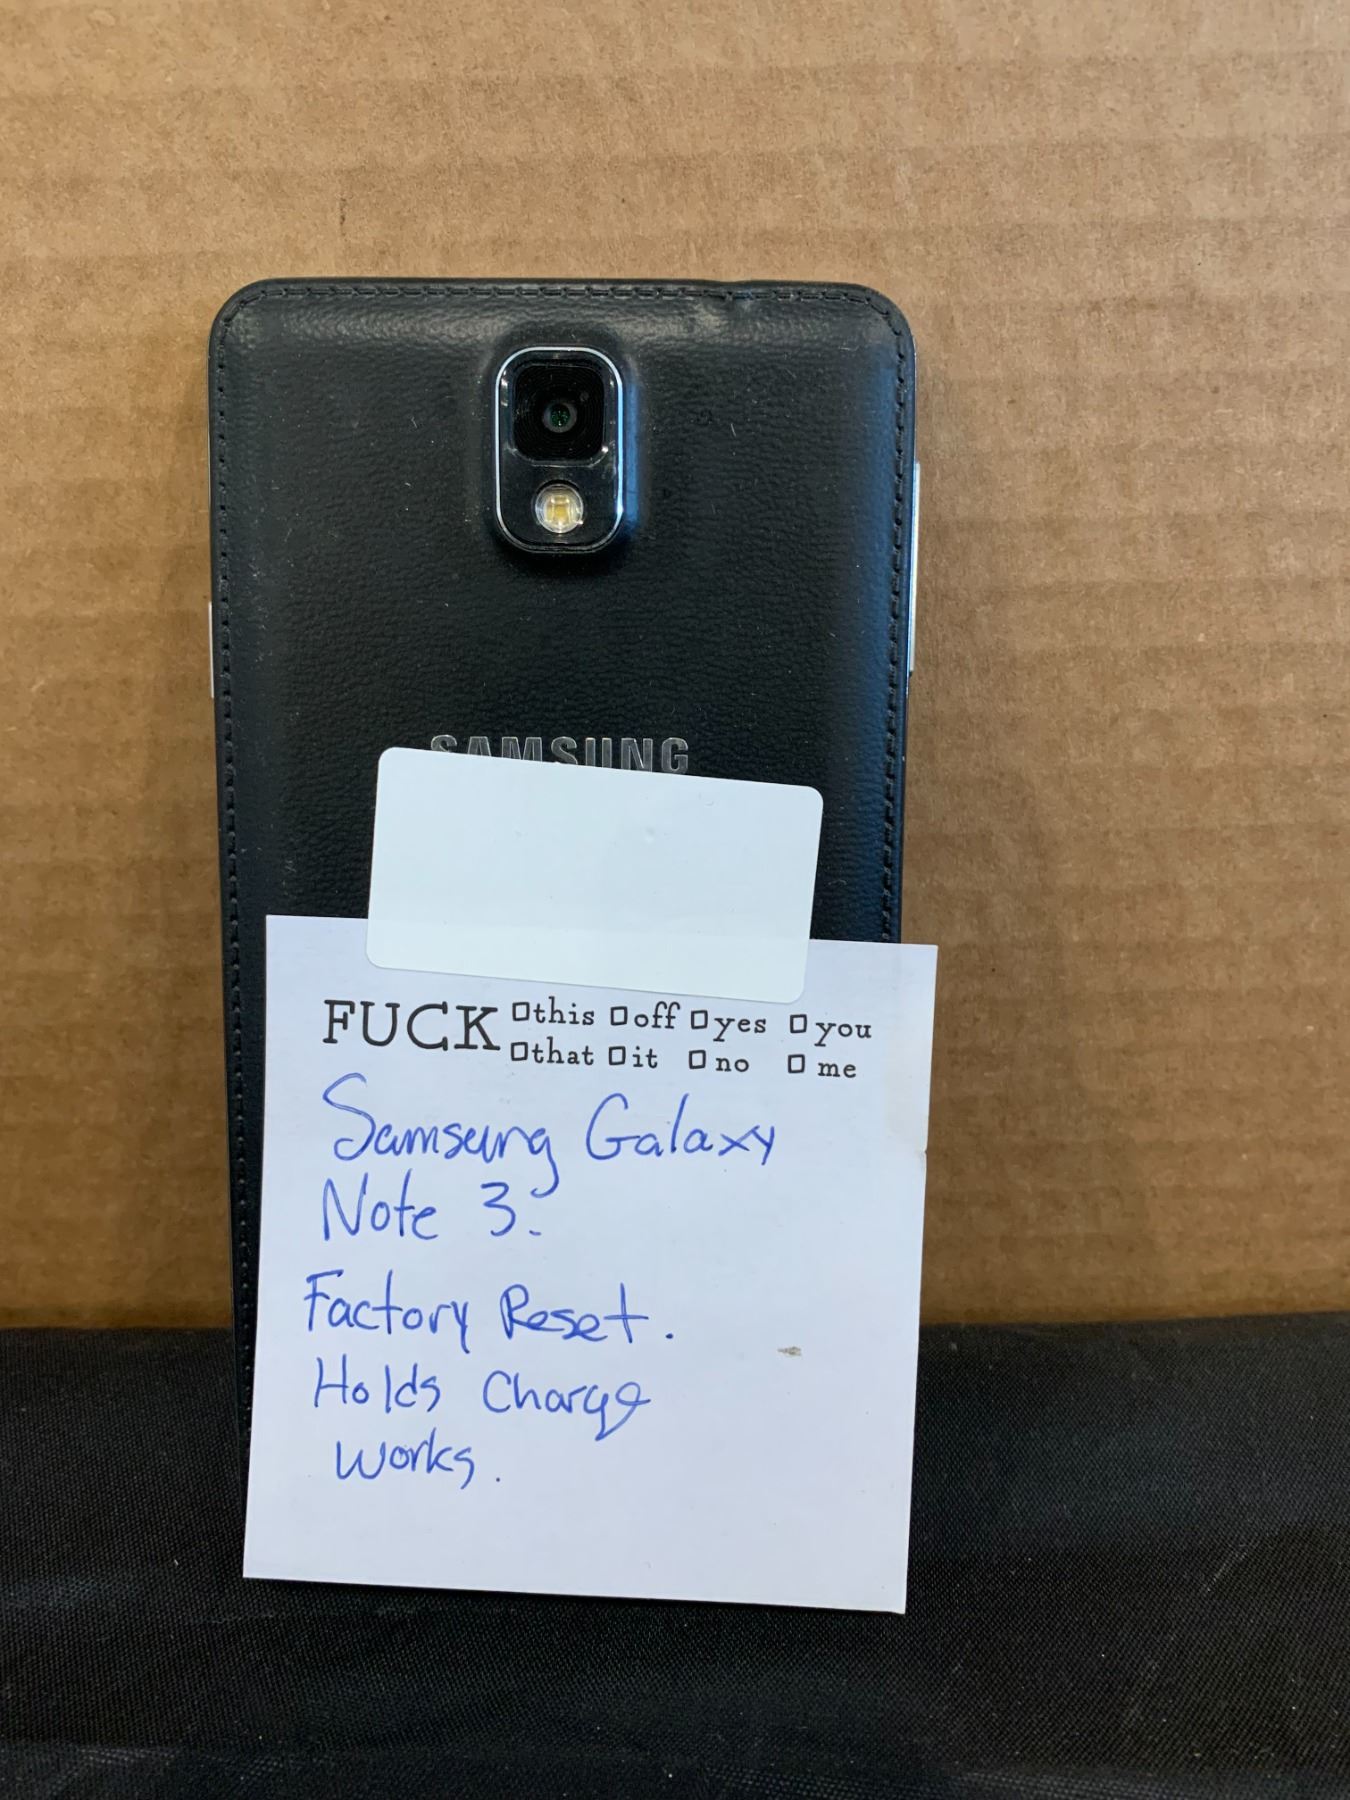 SAMSUNG
FUCK □this □off □yes □you
□that □it □no □me
Samsung Galaxy
Note 3.
Factory Reset.
Holds Charge
Works.